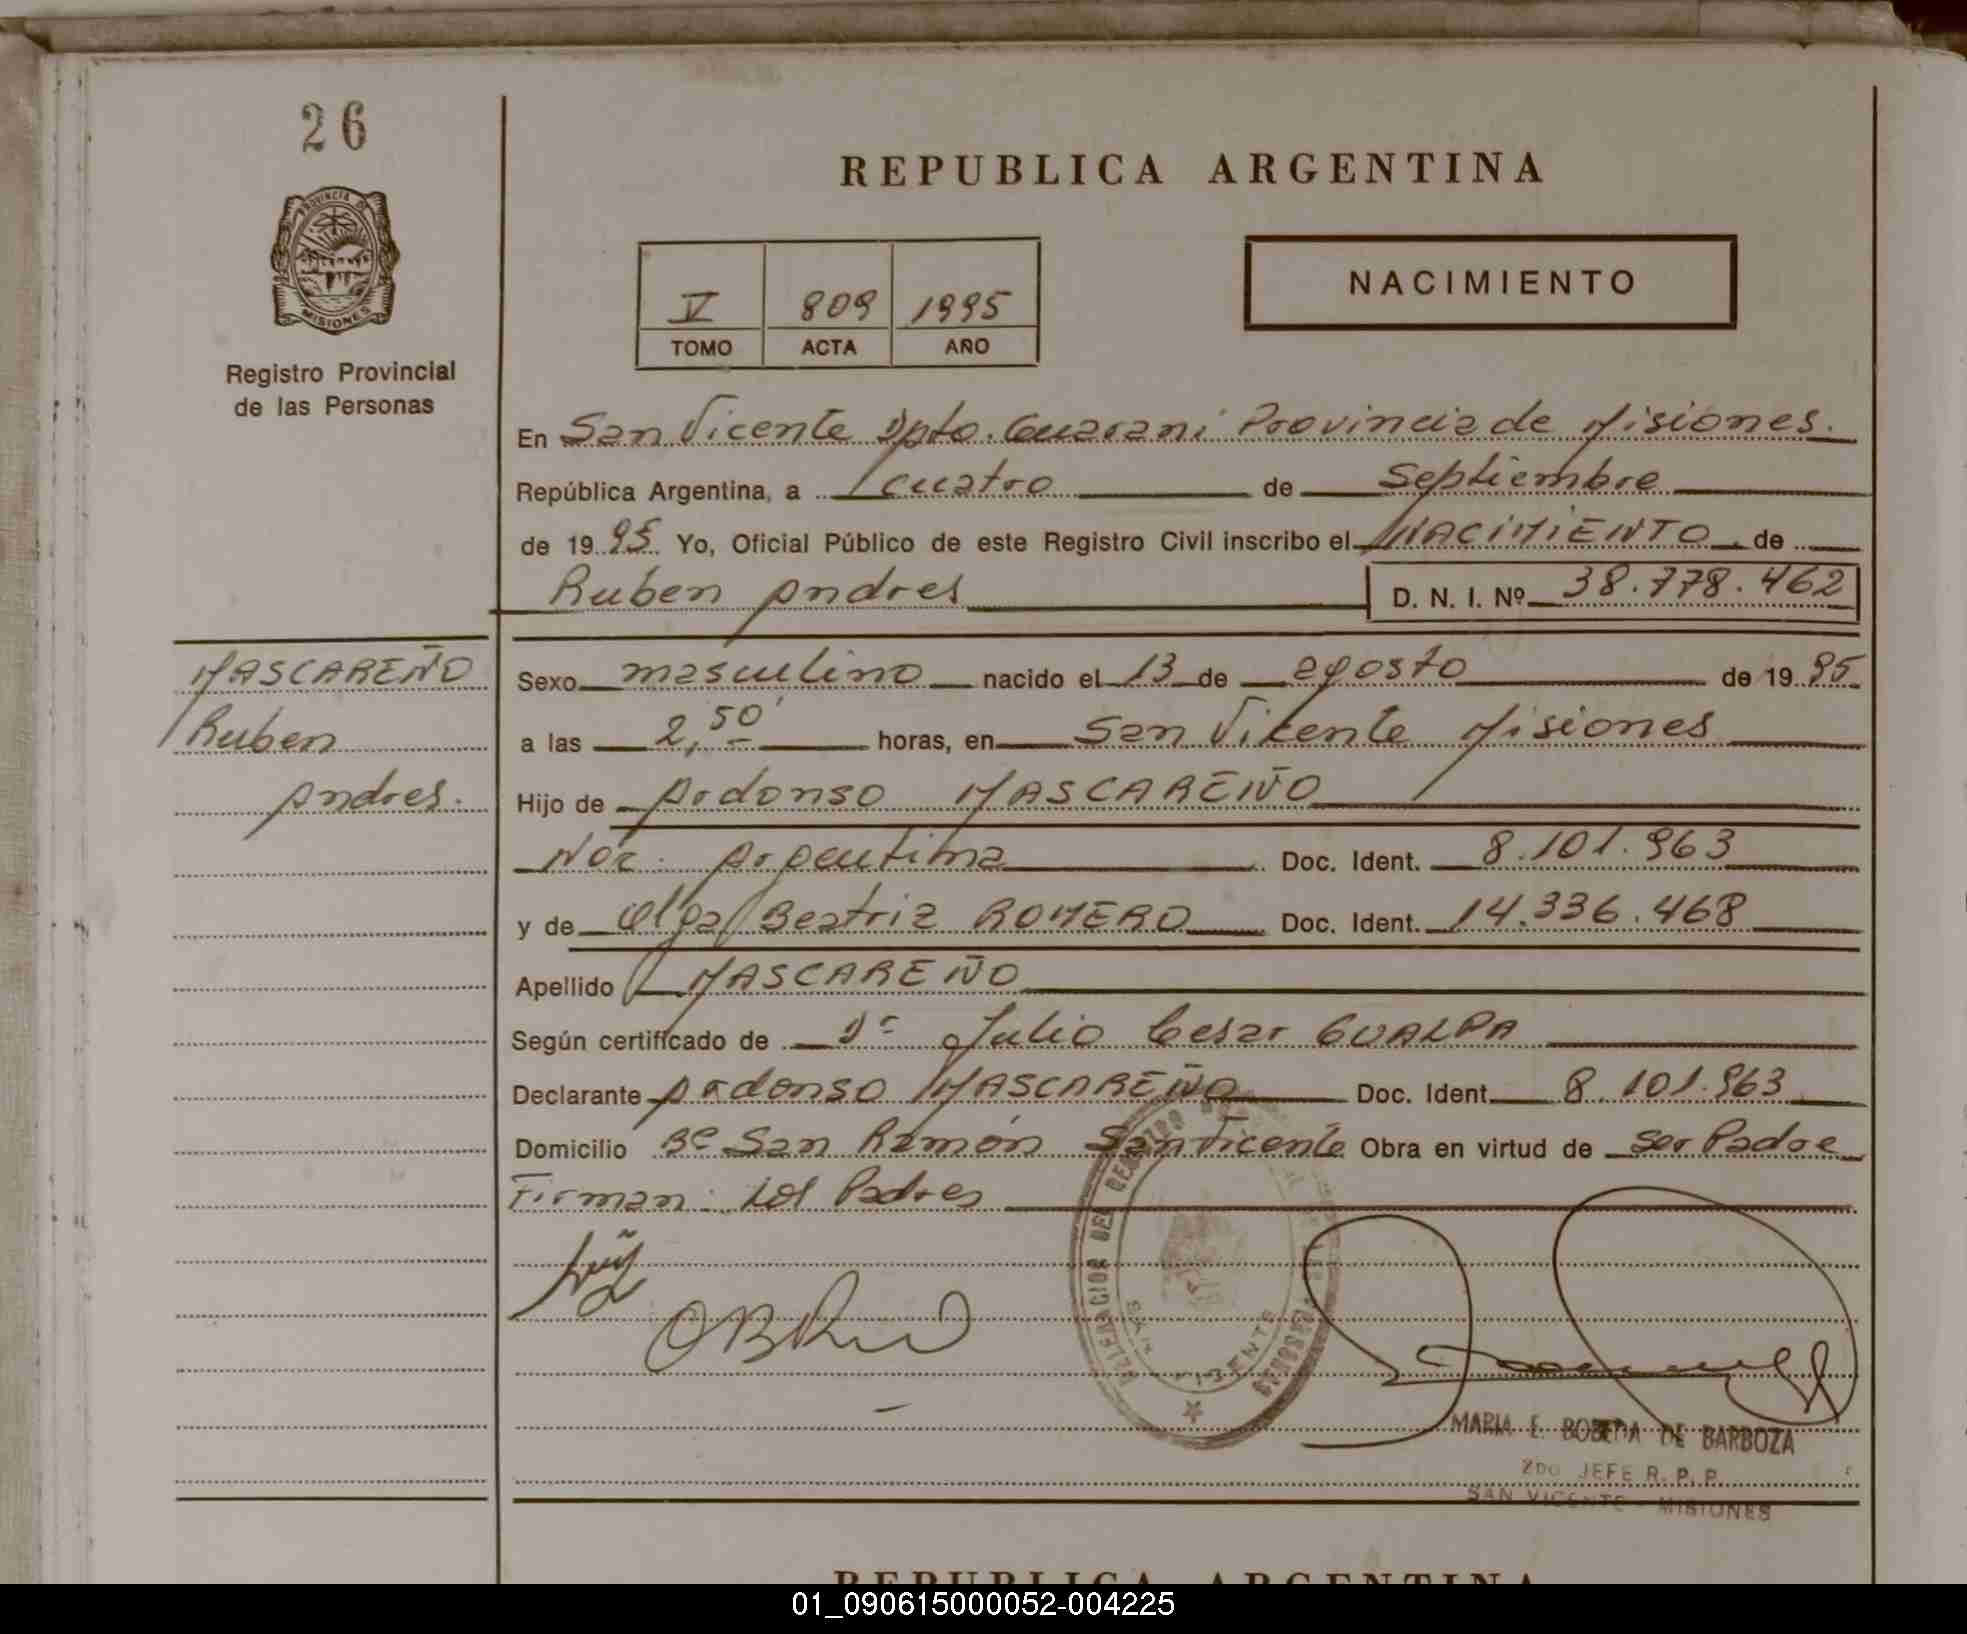 26
PROVINCIA DE
MISIONES
Registro Provincial
de las Personas
REPUBLICA ARGENTINA
V 809 1995
TOMO ACTA AÑO
NACIMIENTO
En San Vicente Dpto. Guarani Provincia de Misiones.
República Argentina, a cuatro de Septiembre
de 1995 Yo, Oficial Público de este Registro Civil inscribo el NACIMIENTO de
Ruben Andres D. N. I. Nº 38.778.462
MASCAREÑO
Ruben
Andres.
Sexo masculino nacido el 13 de agosto de 1995
a las 2,50 horas, en San Vicente Misiones
Hijo de Ardonso MASCAREÑO
Nac. Argentina Doc. Ident. 8.101.963
y de Olga Beatriz ROMERO Doc. Ident. 14.336.468
Apellido MASCAREÑO
Según certificado de Dr Julio Cesar GUALPA
Declarante Ardonso MASCAREÑO Doc. Ident. 8.101.963
Domicilio Bº San Ramón San Vicente Obra en virtud de ser Padre
Firman: los Padres
DELEGACION DEL REGISTRO
SAN VICENTE
MISIONES
MARIA E. BOBEDA DE BARBOZA
2DO JEFE R. P. P.
SAN VICENTE - MISIONES
REPUBLICA ARGENTINA
01_090615000052-004225